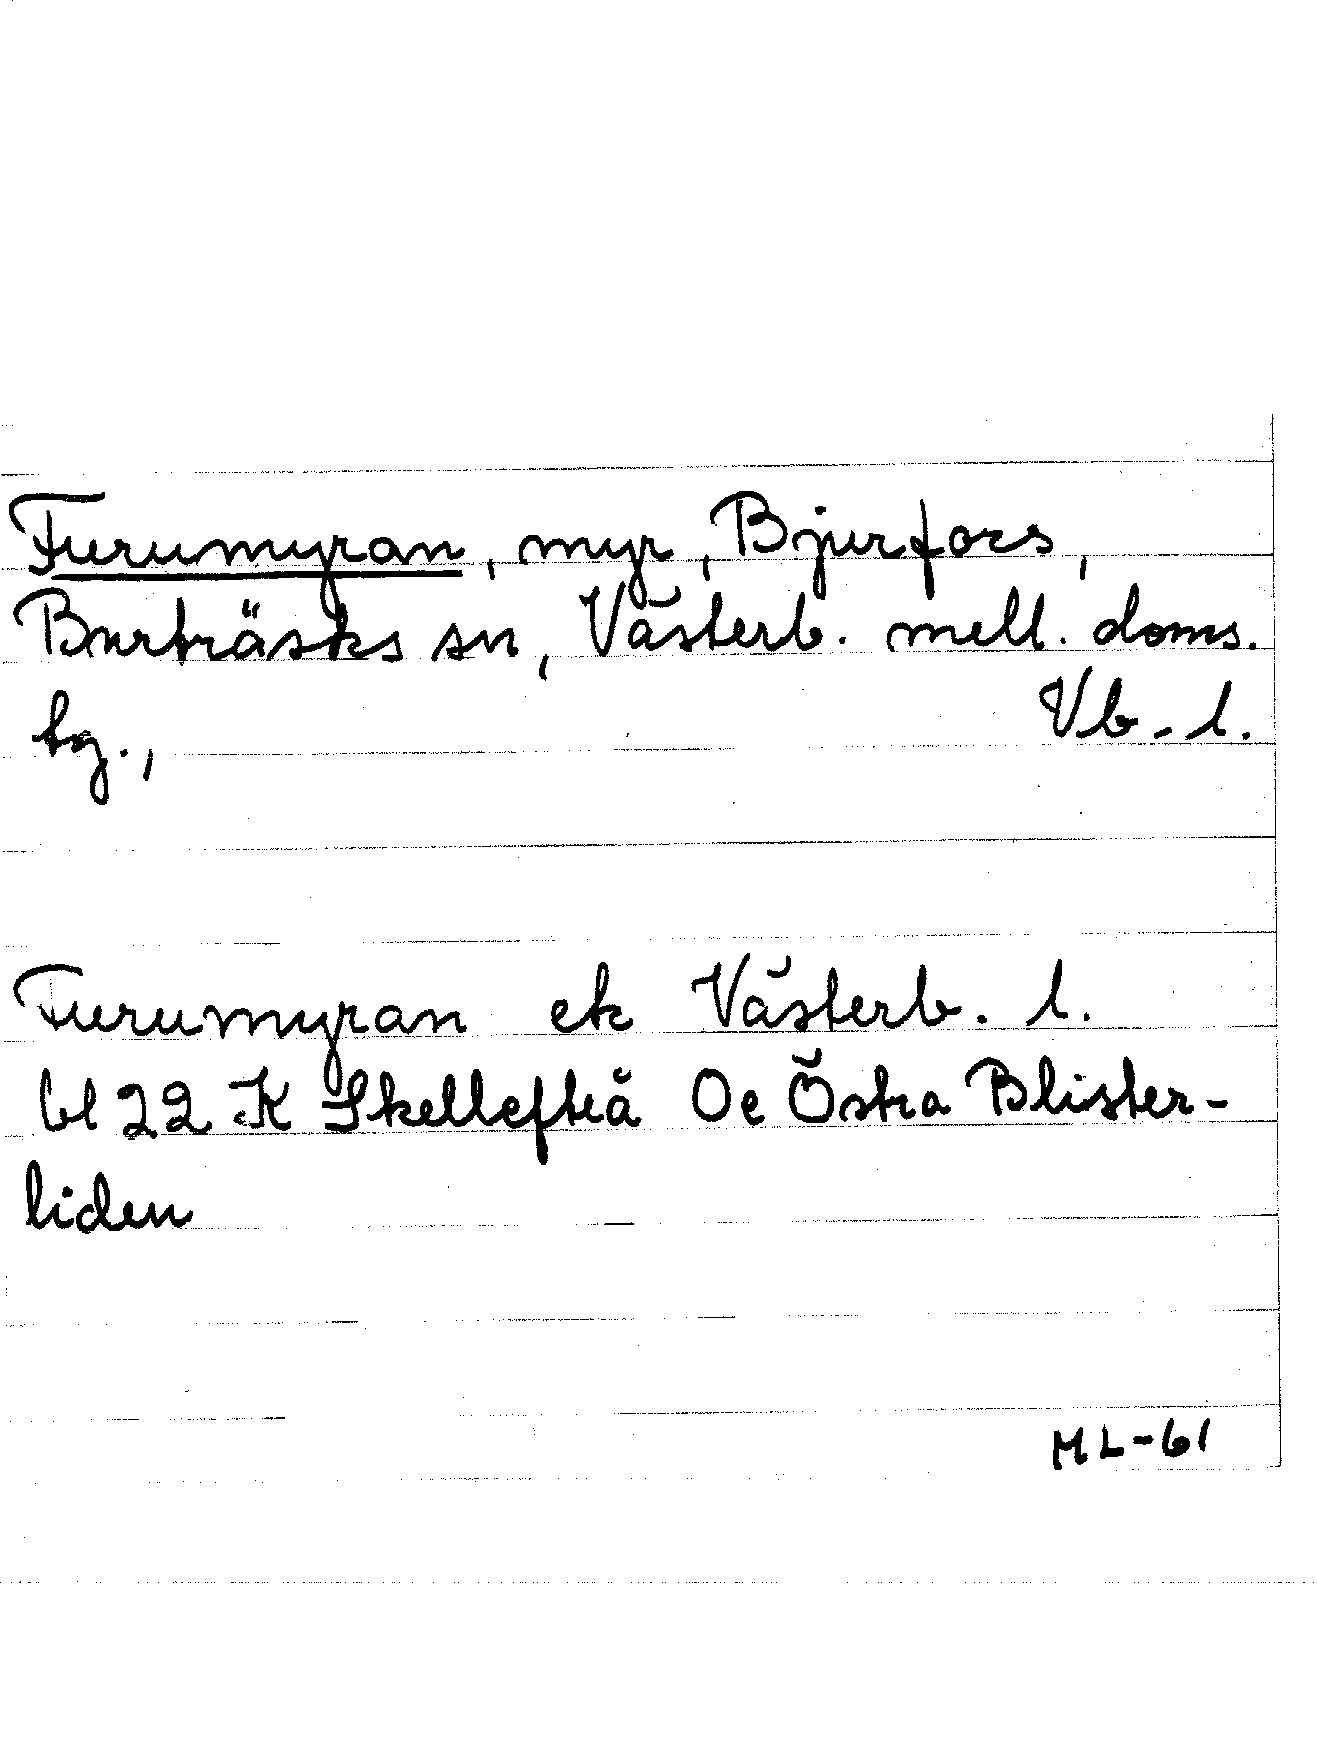 Furumyran, myr, Bjurfors,
Burträsks sn, Västerb. mell. doms.
tg., Vb. l.
Furumyran ek Västerb. l.
bl 22 K Skellefteå Oe Östra Blister-
liden
ML-61